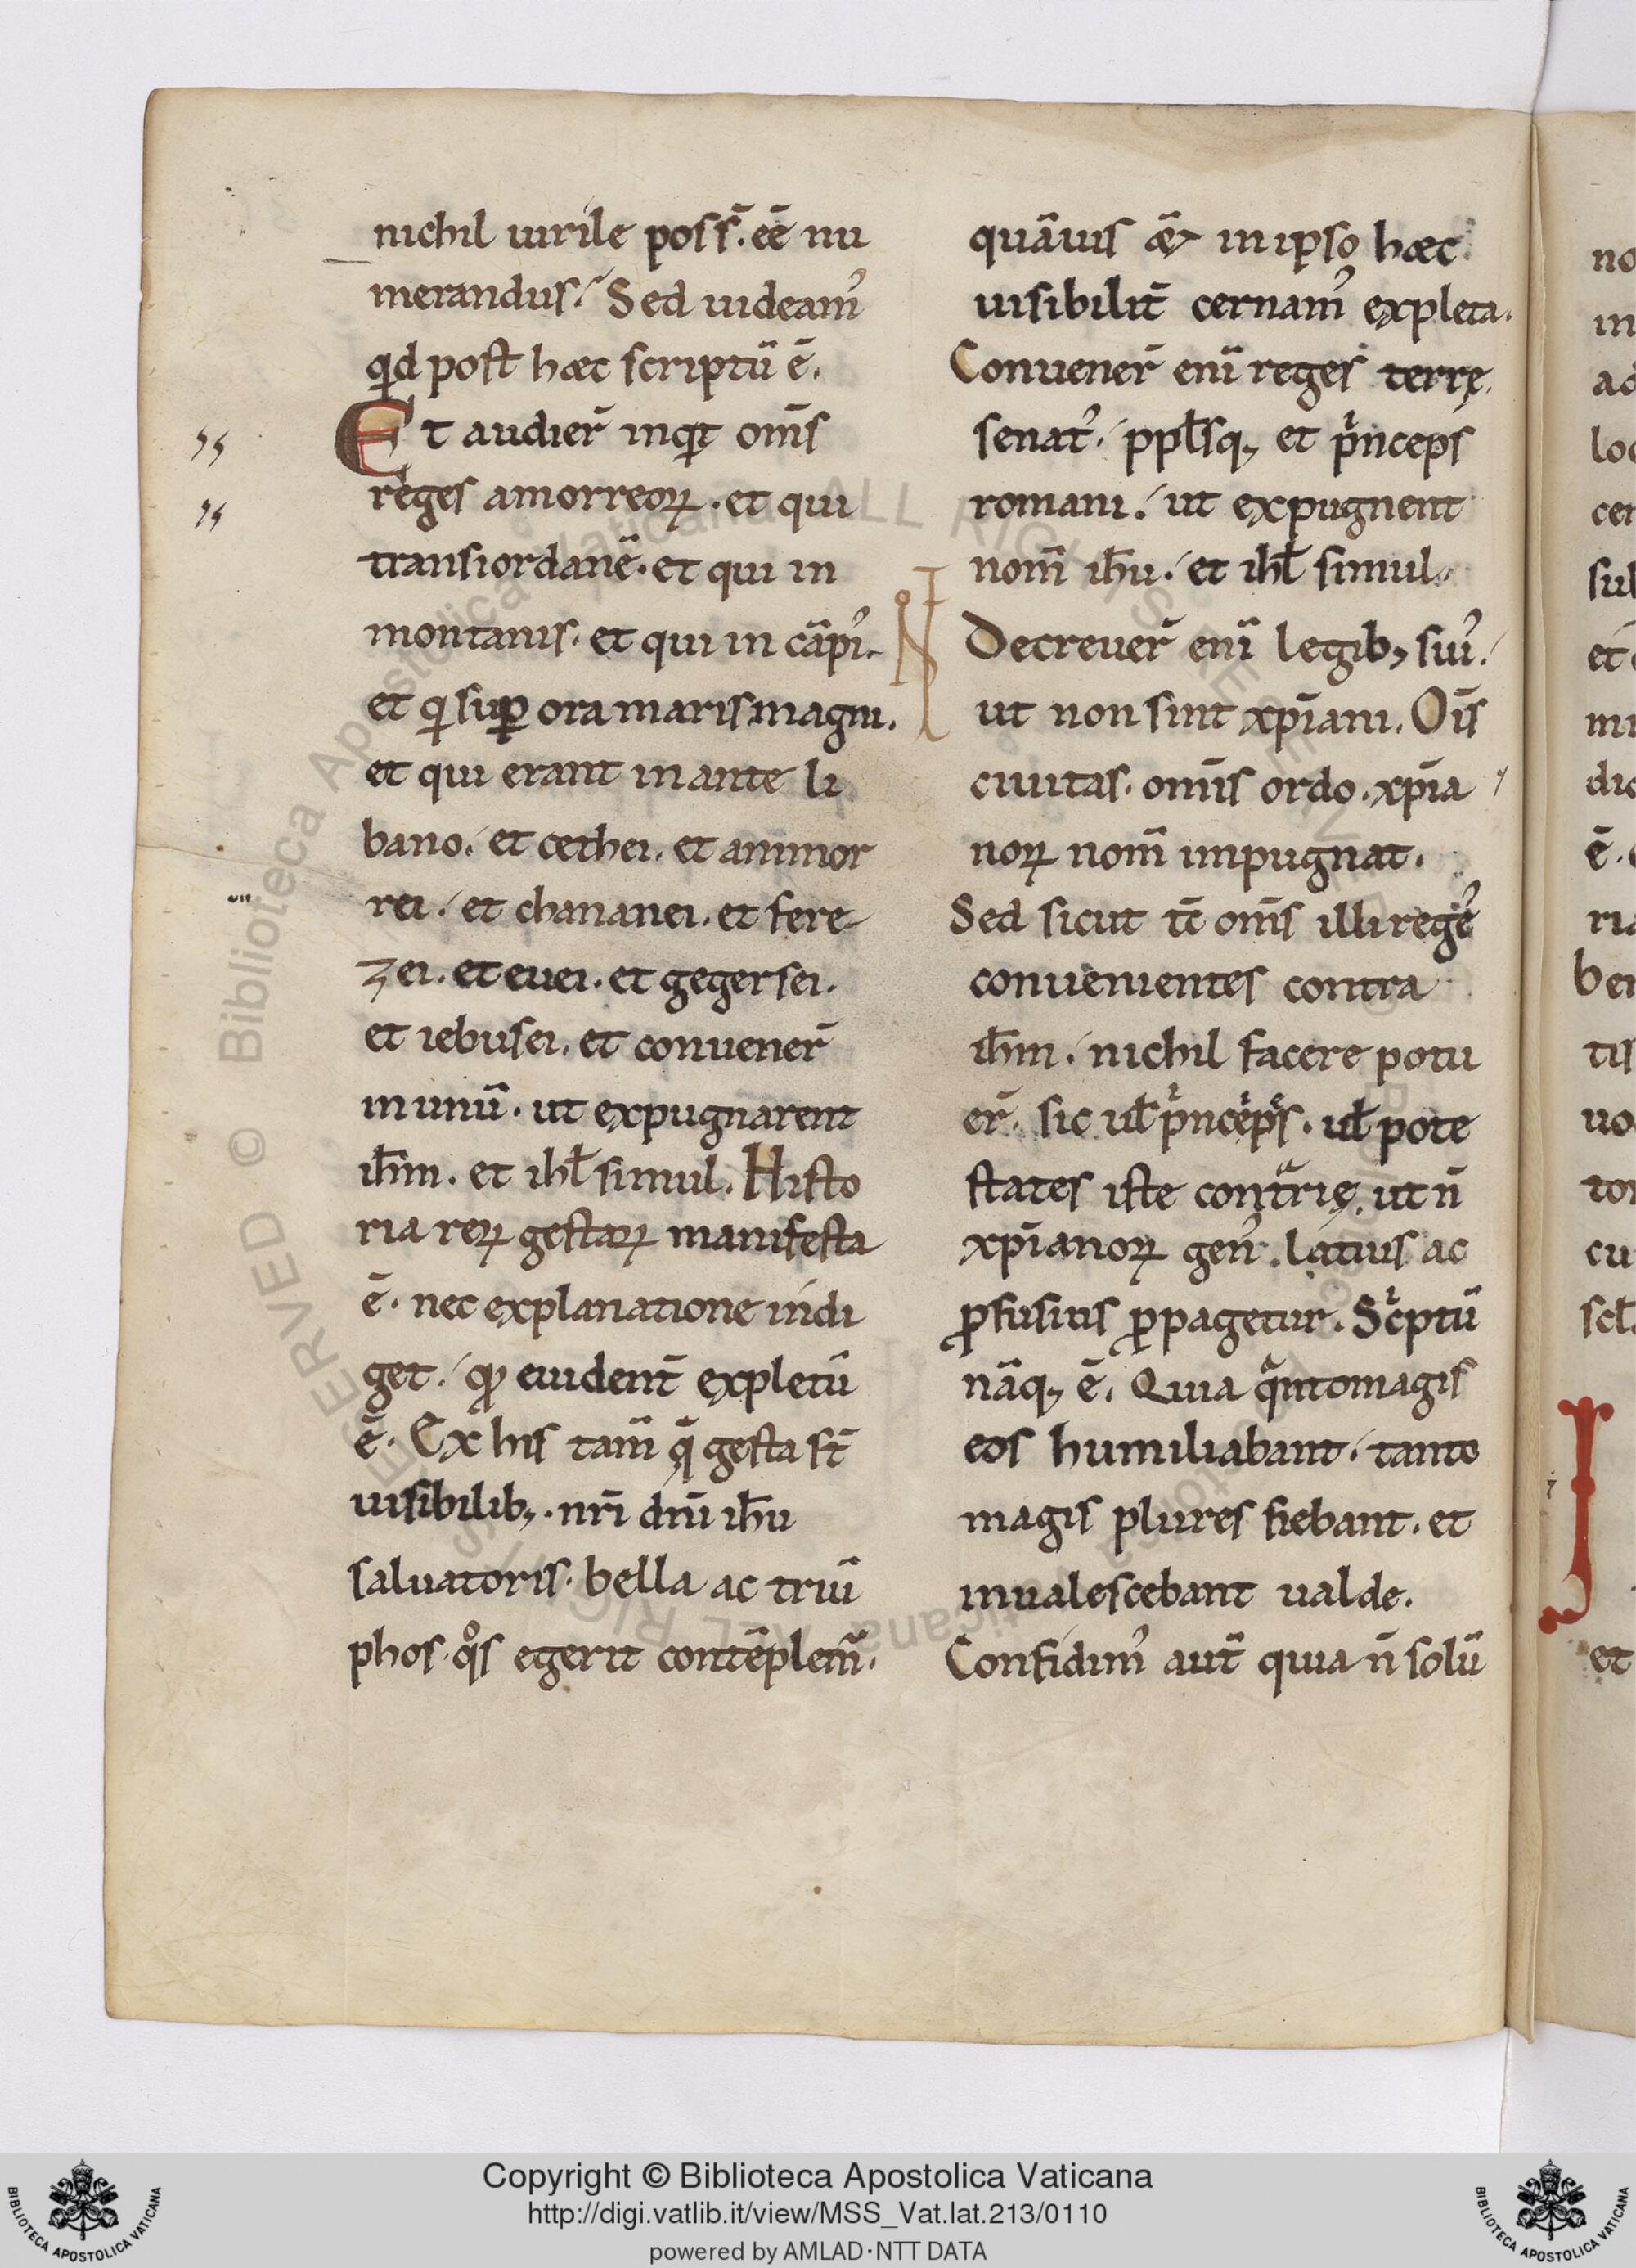 nichil uirile poss̄. ēē nu
merandus. Sed uideam᾿
qid post hæc scriptū ē.
Et audier̄ inqit om̄s
reges amorreoꝝ. et qui
transiordanē. et qui in
montanis. et qui in cāpi᾿.
et qi suꝑ ora maris magni.
et qui erant in ante li
bano. et cethei. et ammor
rei. et chananei. et fere-
zei. et euei. et gegersei.
et iebusei. et conuener̄
in unū. ut expugnarent
ih̄m. et ihl̄ simul. Histo
ria reꝝ gestaꝝ manifesta
ē. nec explanatione indi
get. qꝫ euident̄ expletū
ē. Ex his tam̄ q̄ gesta st̄
uisibilibꝫ. nr̄i dn̄i ih̄u
saluatoris. bella ac triū
phos. qͦs egerit contēplem̄.
quāuis ǣ in ipso hæc
uisibilit̄ cernam᾿ expleta.
Conuener̄ eni̅ reges terrę.
senat᾿. ppl̄sqꝫ et pͥnceps
romani. ut expugnent
nom̄ ih̄u. et ihl̄ simul.
Decreuer̄ eni̅ legibꝫ sui᾿.
ut non sint xp̄iani. Oi̅s
ciuitas. omi̅s ordo. xp̄ia
noꝝ nom̄ impugnat.
Sed sicut tc̄ om̄s illi rege᾿
conuenientes contra
ih̄m. nichil facere potu
er̄. sic ul̄ pͥncep̄s. ul̄ pote
states iste contͣrię. ut n̄
xp̄ianoꝝ gen᾿. latius ac
ꝓfusius ꝓpagetur. Scͥptū
nāqꝫ ē. Quia qͣntomagis
eos humiliabant. tanto
magis plures fiebant. et
inualescebant ualde.
Confidim᾿ aut̄ quia n̄ solū
Copyright © Biblioteca Apostolica Vaticana
http://digi.vatlib.it/view/MSS_Vat.lat.213/0110
powered by AMLAD·NTT DATA